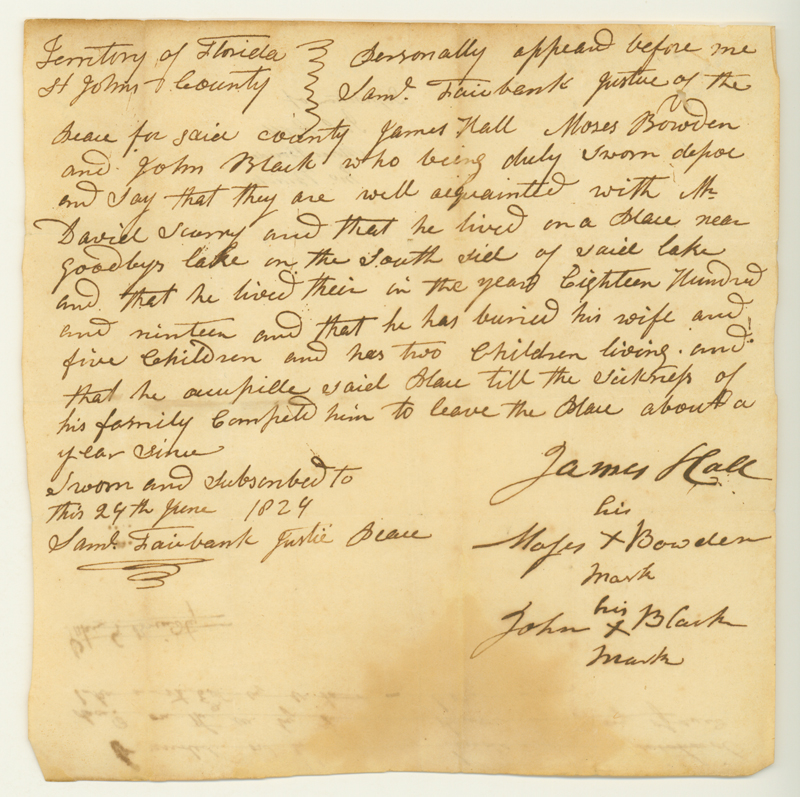 Territory of Florida } Personally appeard before me
St Johns County } Saml. Fairbank Justice of the
Peace for said county James Hall Moses Bowden
and John Black who being duly sworn depoe
and say that they are well acquainted with Mr
David Scurry and that he lived on a Place near
goodbys lake on the South sid of said lake
and that he lived their in the year Eighteen Hundred
and nineteen and that he has buried his wife and
five Children and has two Children living. and
that he occupide said Place till the sickness of
his family Compeld him to leave the Place about a
year since
Sworn and subscribed to
this 24th June 1824
Saml. Fairbank Justie Peace
James Hall
his
Moses X Bowden
mark
his
John X Black
mark